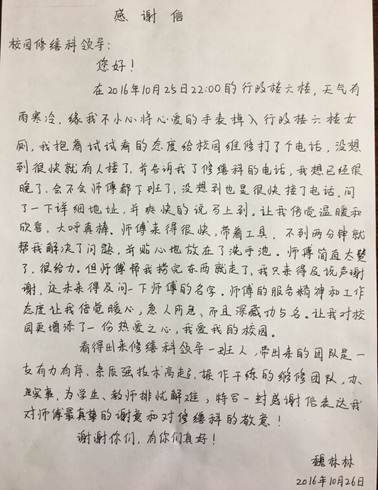 感谢信
校园修缮科领导:
您好!
在2016年10月25日22:00的行政楼六楼,天气有
雨寒冷,缘我不小心将心爱的手表掉入行政楼六楼女
厕,我抱着试试看的态度给校园维修打了个电话,没想
到很快就有人接了,并告诉我了修缮科的电话,我想已经很
晚了,会不会师傅都下班了,没想到也是很快接了电话,问
了一下详细地址,并爽快的说马上到,让我倍觉温暖和
欣喜,大呼真棒。师傅来得很快,带着工具,不到两分钟就
帮我解决了问题,并贴心地放在了洗手池。师傅简直太赞
了,很给力。但师傅帮我捞完东西就走了,我只来得及说声谢
谢,还未来得及问一下师傅的名字。师傅的服务精神和工作
态度让我倍觉暖心,急人所急、而且深藏功与名。让我对校
园更增添了一份热爱之心,我爱我的校园。
看得出来修缮科领导一班人,带出来的团队是一
支有力有序,素质强技术高超,操作干练的维修团队,办
实事,为学生、教师排忧解难,特写一封感谢信表达我
对师傅最真挚的谢意和对修缮科的敬意!
谢谢你们,有你们真好!
林林
2016年10月26日